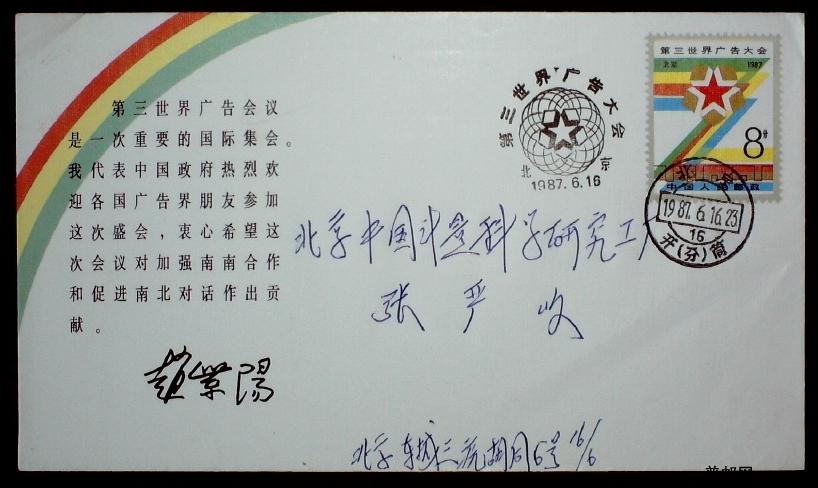 第三世界广告会议
是一次重要的国际集会。
我代表中国政府热烈欢
迎各国广告界朋友参加
这次盛会，衷心希望这
次会议对加强南南合作
和促进南北对话作出贡
献。
赵紫陽
第三世界广告大会
北京
1987.6.16
第三世界广告大会
北京 1987
8分
中国人民邮政
北京
1987.6.16.23
16
开(分)筒
北京中国计量科学研究工厂
张 严 收
北京东城三 6号 16/6
普邮网